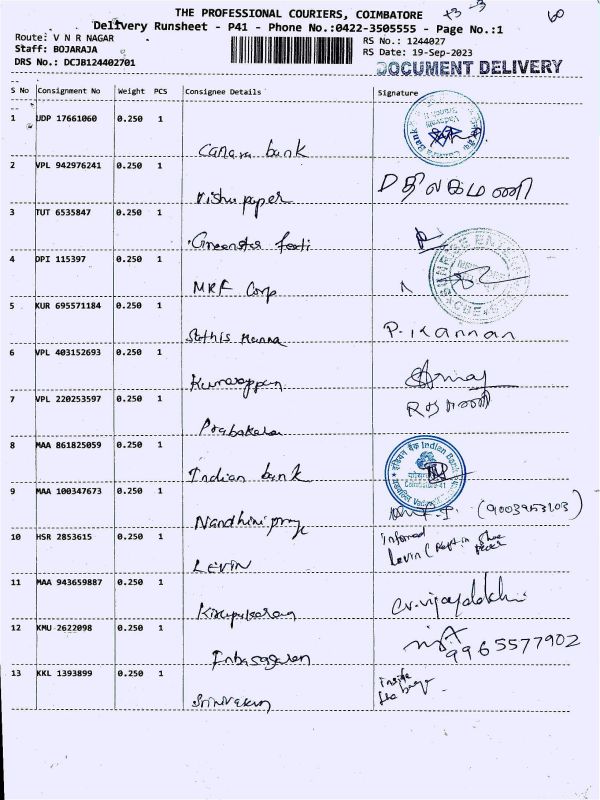 THE PROFESSIONAL COURIERS, COIMBATORE
+3 -3
60
Delivery Runsheet - P41 - Phone No.:0422-3505555 - Page No.:1
Route: V N R NAGAR
RS No.: 1244027
Staff: BOJARAJA
RS Date: 19-Sep-2023
DRS No.: DCJB124402701
DOCUMENT DELIVERY
S No Consignment No Weight PCS Consignee Details Signature
1 UDP 17661060 0.250 1
Canara bank
2 VPL 942976241 0.250 1
Vishu paper
திலகமணி
3 TUT 6535847 0.250 1
Greenstar
4 DPI 115397 0.250 1
MRF Corp
5 KUR 695571184 0.250 1
P. Kannan
6 VPL 403152693 0.250 1
7 VPL 220253597 0.250 1
Prabakara
8 MAA 861825059 0.250 1
Indian bank
इंडियन बैंक Indian Bank
9 MAA 100347673 0.250 1
Nandhini
(9003953103)
10 HSR 2853615 0.250 1
LEVIN
Informed
Levin (Kept in Shoe
11 MAA 943659887 0.250 1
CV. Vijayalakshmi
12 KMU 2622098 0.250 1
Inbasagaran
9965577902
13 KKL 1393899 0.250 1
Srinivasan
inside